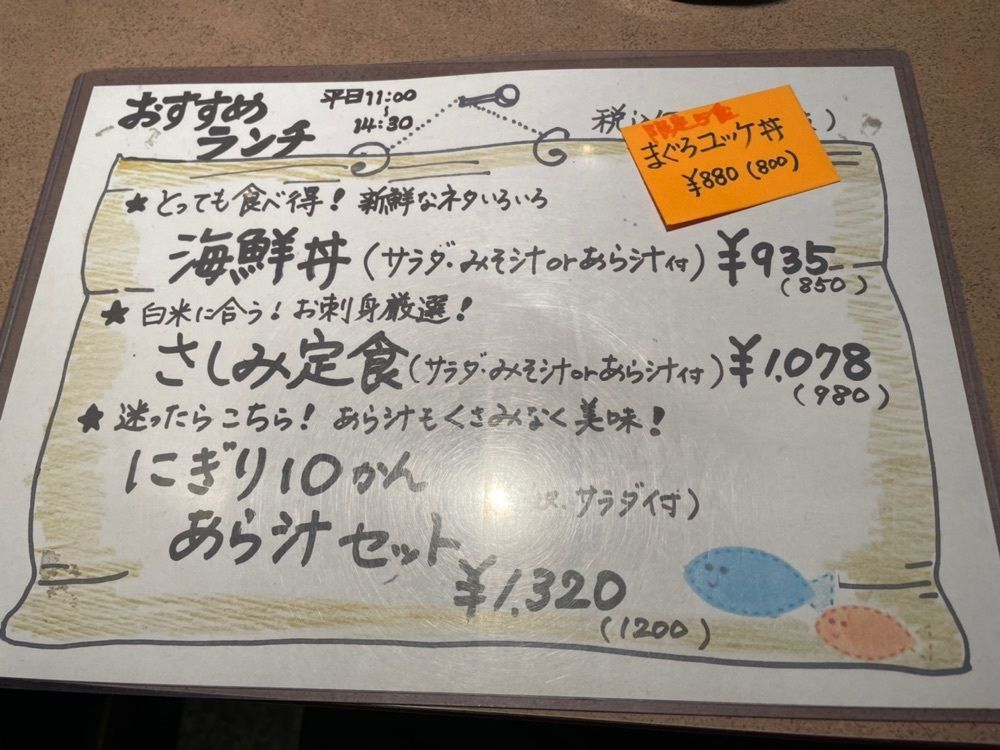 おすすめ
ランチ
平日11:00
~
14:30
限定5食
まぐろユッケ丼
¥880(800)
★とっても食べ得! 新鮮なネタいろいろ
海鮮丼(サラダ・みそ汁orあら汁付)¥935
(850)
★白米に合う!お刺身厳選!
さしみ定食(サラダ・みそ汁orあら汁付)¥1,078
(980)
★迷ったらこちら! あら汁もくさみなく美味!
にぎり10かん
サラダ付)
あら汁セット
¥1,320
(1200)